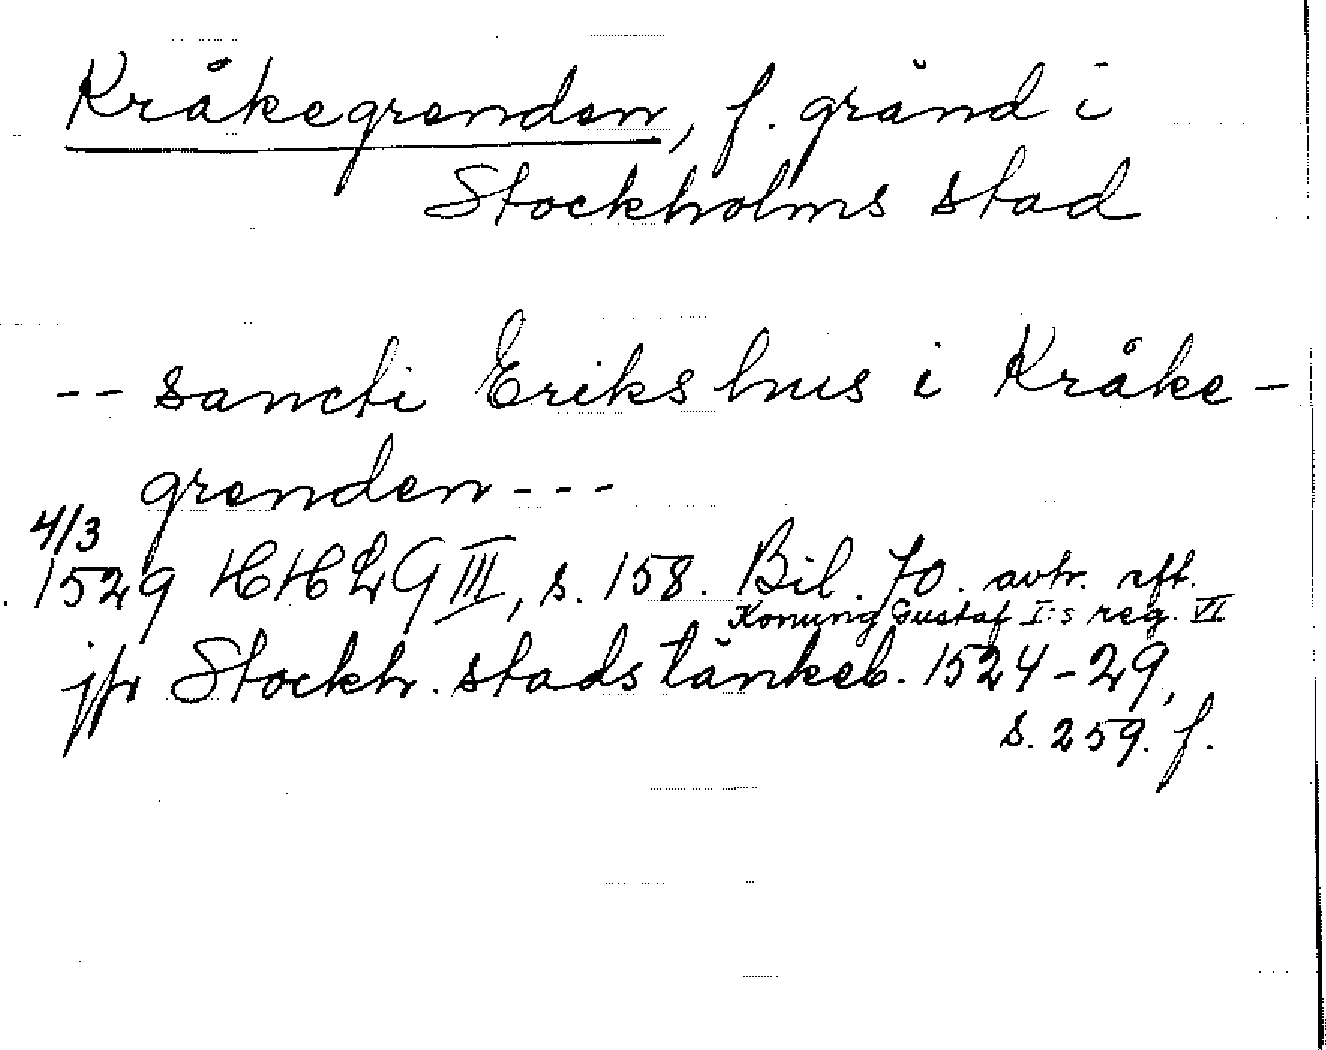 Kråkegrenden, f. gränd i
Stockholms stad
-- sancti Eriks hus i Kråke-
grenden ---
4/3
1529 HHLG III, s. 158. Bil. 70. avtr. eft.
Konung Gustaf I:s reg. VI
jfr Stockh. stads tänkeb. 1524-29,
s. 259. f.